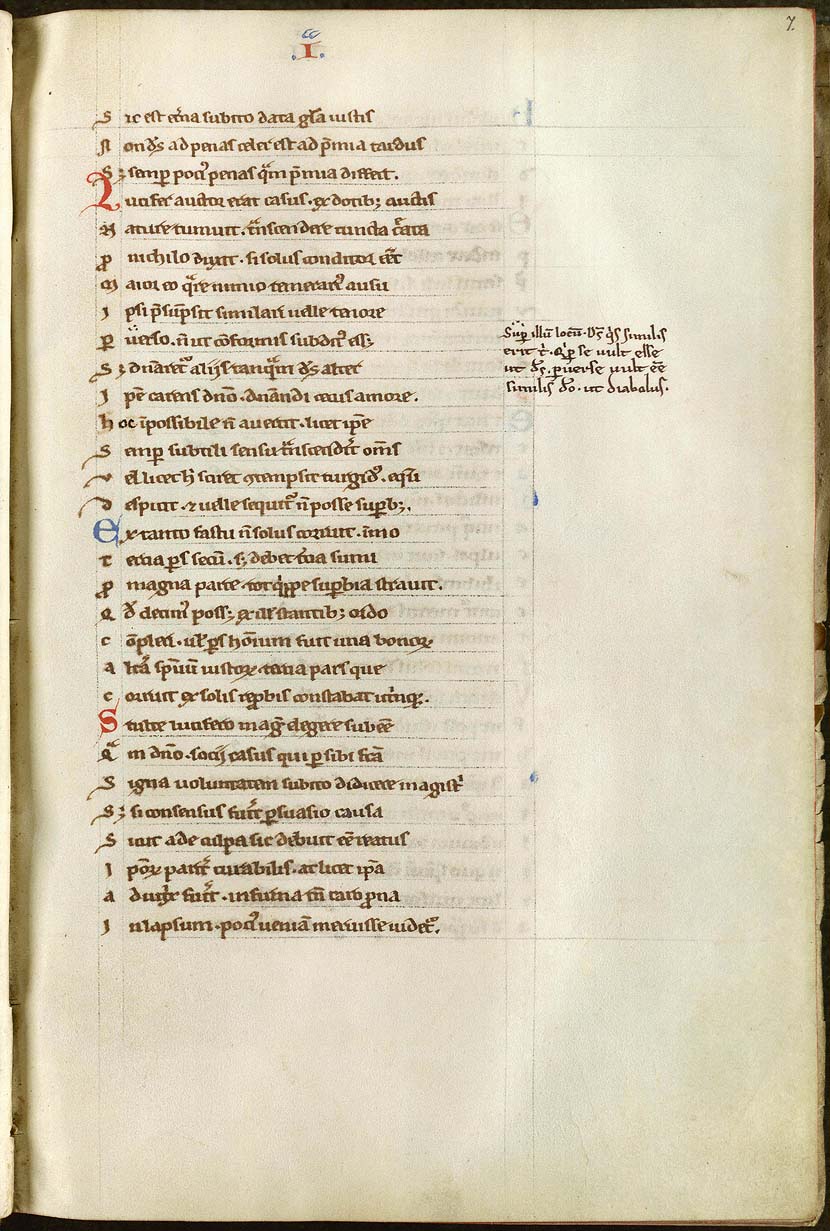 7.
.I.
Sic est et̃na subito data gl̃a iustis
Non d̃s ad penas celer est ad p̃mia tardus
Sꝫ semꝑ poci᷒ penas q̃m p̃mia differt.
Lucifer auctor erat casus · ex dotibꝫ auctis
Nature tumuit · t̃nscendere cuncta c̃ata
Pro nichilo duxit · si solus conditor eẽt
Maior eo q̃re nimio temerari᷒ ausu
Ipsi p̃sũpsit similari uelle teniore
Peruerso · ñ ut cõformis subdit᷒ esset
Sꝫ dñaret᷑ alijs tanq̃m d̃s alter
Ipse carens dño · dñandi cecus amore.
Hoc ĩpossibile ñ auertit · licet ipse
Semꝑ subtili sensu t̃nscenderit om̃s
Vel licet h̾ sciret ꝯtempsit turgid᷒ · eq̃li
Despicit · ⁊ uelle sequit᷑ ñ posse suꝑbꝫ.
Ex tanto fastu ñ solus corruit · ĩmo
Tercia ꝑs secũ · sꝫ debet t̃cia sumi
Pro magna parte · tot q̃ppe suꝑbia strauit.
Qd̾ decim᷒ possꝫ ex illis stantibꝫ ordo
Cõpleri · ul̾ ꝑs hoĩum fuit una bonoꝝ
Alt̃a sp̃uũ iustoꝝ · tercia pars que
Corruit ex solis rep̃bis constabat utrinqꝫ.
Stulte lucifero mag̃ elegere subeẽ
Q̃m dño · socij casus qui ꝑ sibi fc̃a
Signa uoluntatem subito didicere magistri
Sꝫ si consensus fuit̾ ꝑsuasio causa
Sicut ade culpa sic debuit eẽ reatus
Ipsoꝝ parit̾ curabilis · at licet ip̃a
Adiuc̾t̾ fuit̾ · inf̃na tñ caro ꝓna
In lapsum · poci᷒ ueniã meruisse uidet᷑.
Suꝑ illũ locũ · D̃s q̃s similis
erit t̾ · Q̾ ꝑ se uult esse
ut d̃s · ꝑuerse uult eẽ
similis d̃o · ut diabolus.